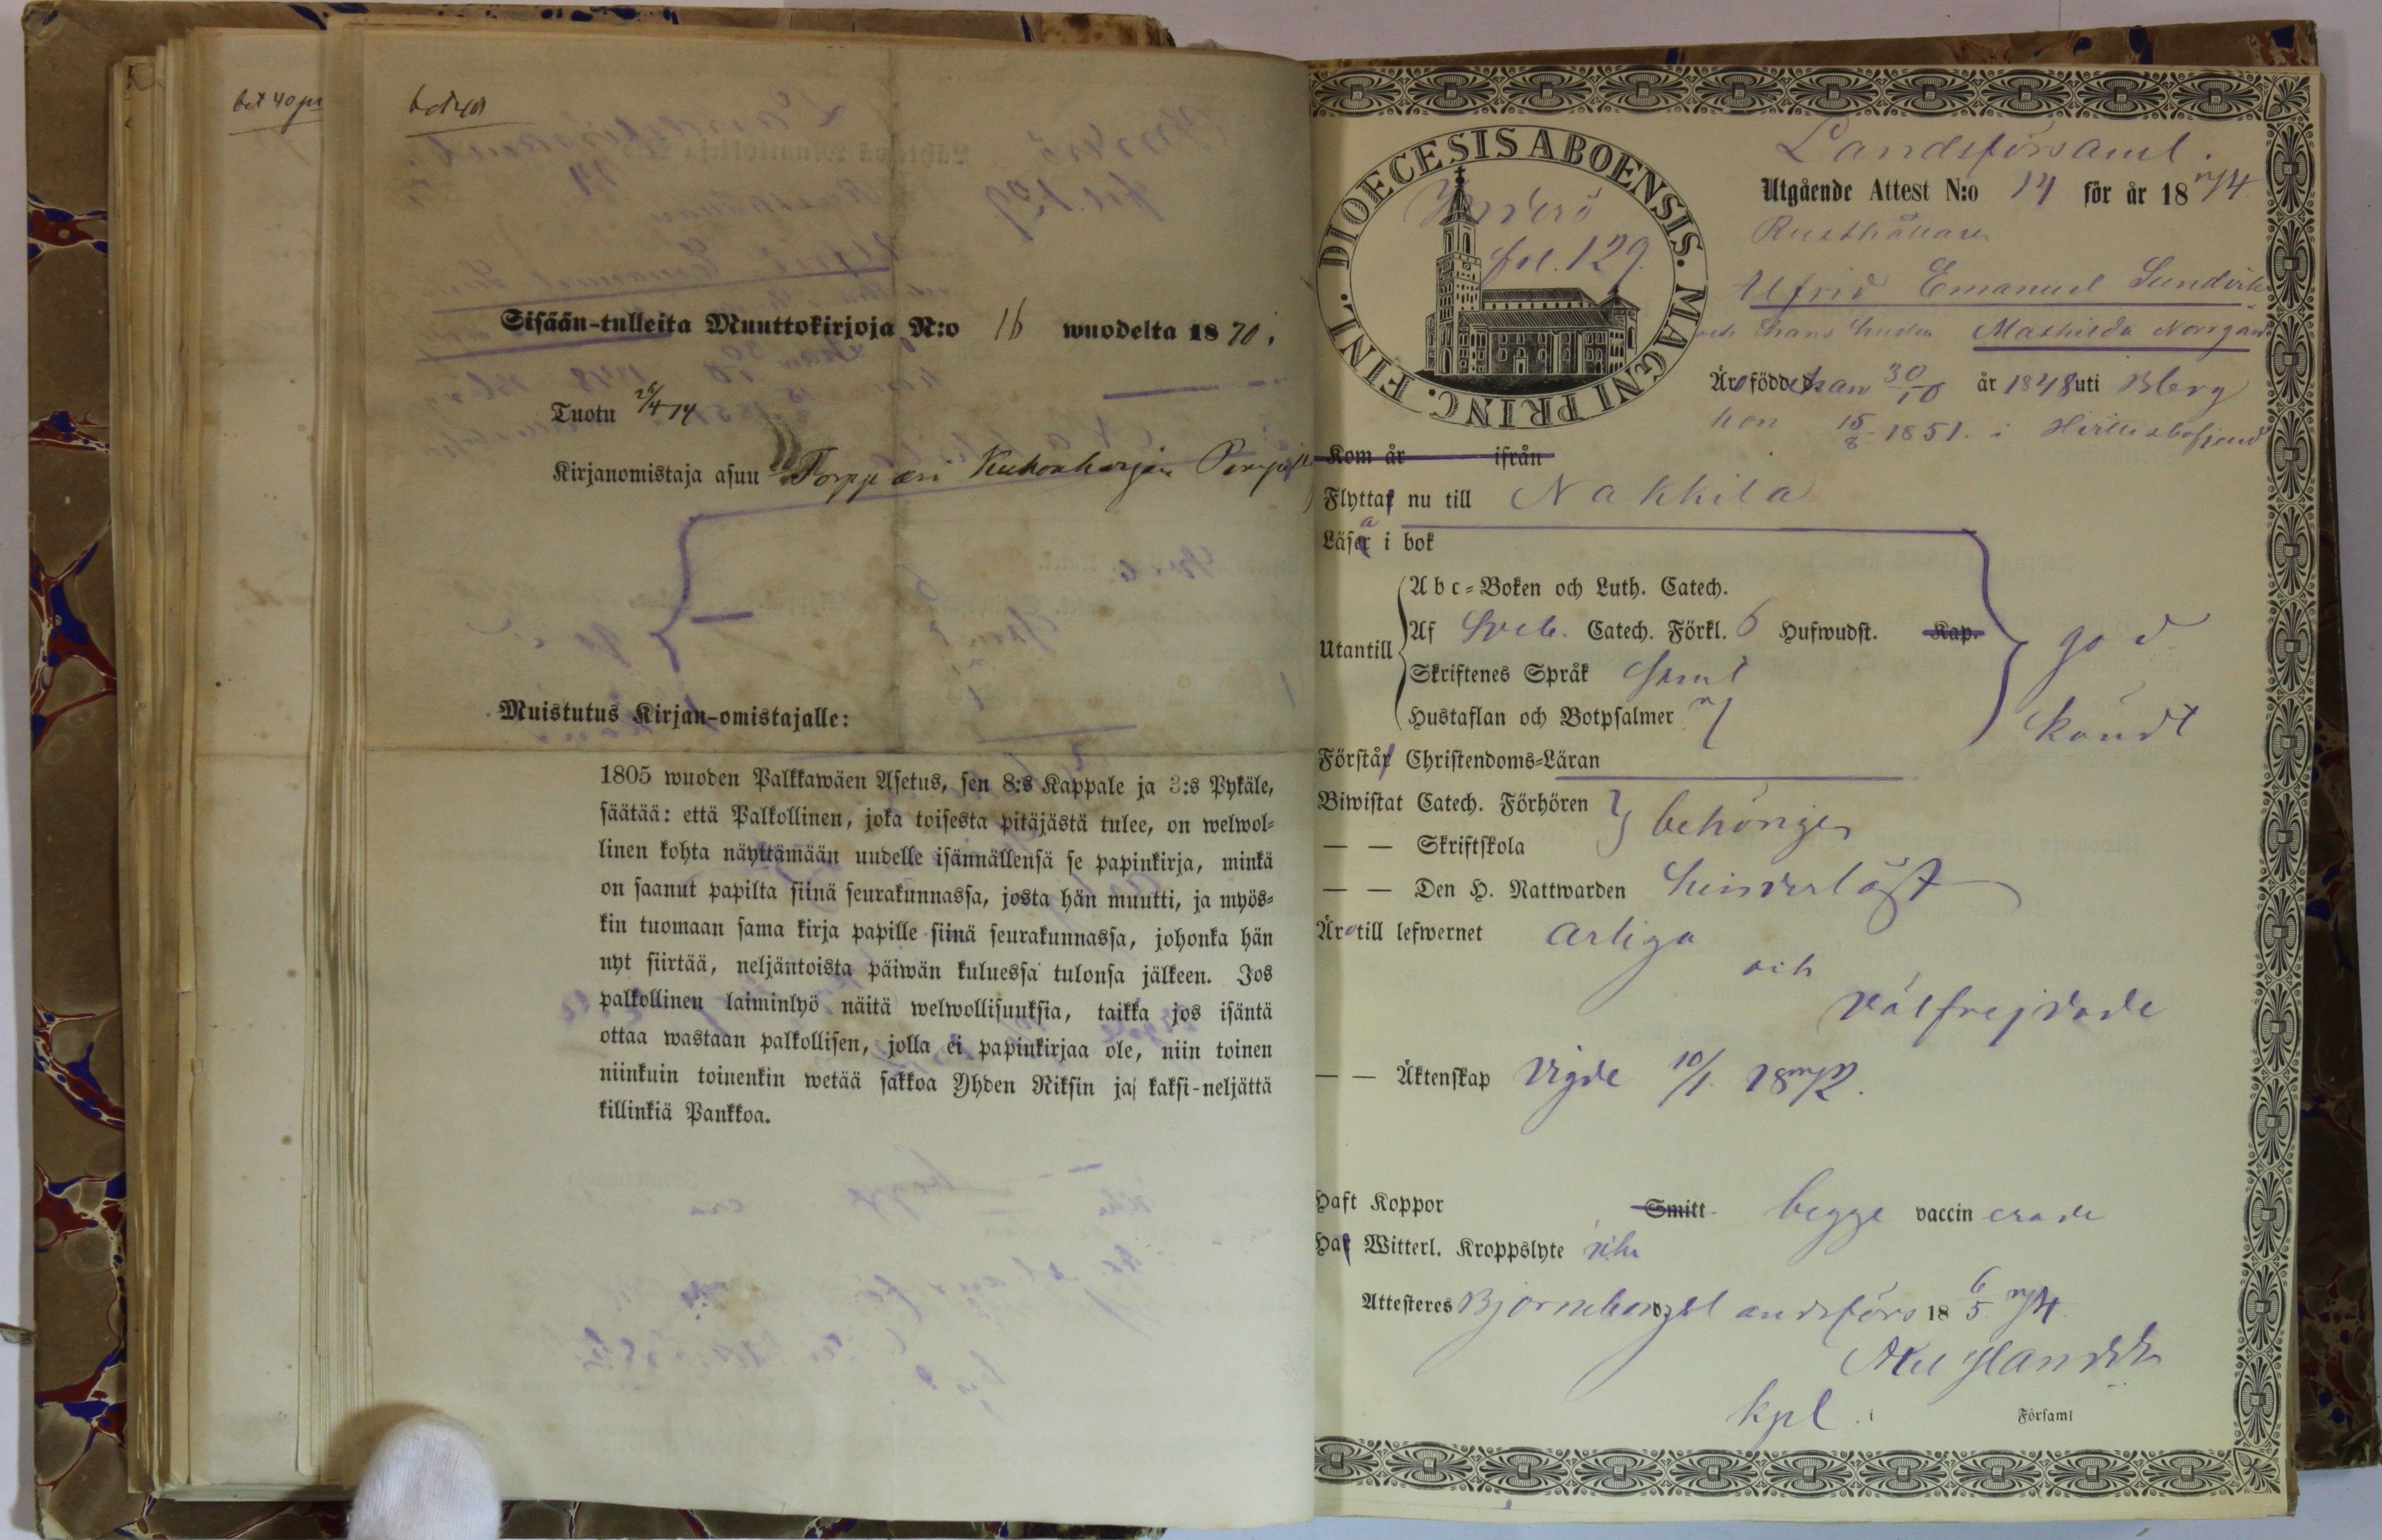 bet 40 pi
Sisään-tulleita Muuttokirjoja N:o 16 wuodelta 1870.
Tuotu 26/4 74
Kirjanomistaja asuu Torppari
Muistutus Kirjan-omistajalle:
1805 wuoden Palkkawäen Asetus, sen 8:s Kappale ja 3:s Pykäle,
säätää: että Palkollinen, joka toisesta pitäjästä tulee, on welwol-
linen kohta näyttämään uudelle isännällensä se papinkirja, minkä
on saanut papilta siinä seurakunnassa, josta hän muutti, ja myös-
kin tuomaan sama kirja papille siinä seurakunnassa, johonka hän
nyt siirtää, neljäntoista päiwän kuluessa tulonsa jälkeen. Jos
palkollinen laiminlyö näitä welwollisuuksia, taikka jos isäntä
ottaa wastaan palkollisen, jolla ei papinkirjaa ole, niin toinen
niinkuin toinenkin wetää sakkoa Yhden Riksin ja kaksi-neljättä
killinkiä Pankkoa.
DIOECESIS ABOENSIS. MAGNI PRINC. FINL.
fol. 129.
Landsförsaml.
Utgående Attest N:o 14 för år 1874
Rusthållaren
Emanuel
och hans hustru Mathilda Norrgård
Äro födde han 30/10 år 1848 uti Bberg
hon 15/8 1851. i
Kom år ifrån
Flytta nu till Nakkila
Läsa i bok
Utantill
Abc-Boken och Luth. Catech.
Af Sveb. Catech. Förkl. 6 Hufwudst. Kap.
Skriftenes Språk samt
Hustaflan och Botpsalmer 7
god
kändt
Förstå Christendoms-Läran
Biwistat Catech. Förhören
behörigen
— — Skriftskola
— — Den H. Nattwarden hinderlöst
Äro till lefwernet ärliga
och
välfrejdade
— — Äktenskap vigde 10/1 1872.
Haft Koppor Smitt begge vaccinerade
Ha Witterl. Kroppslyte icke
Attesteres Björneborgs landsförs 18 6/5 74
kpl. i Församl